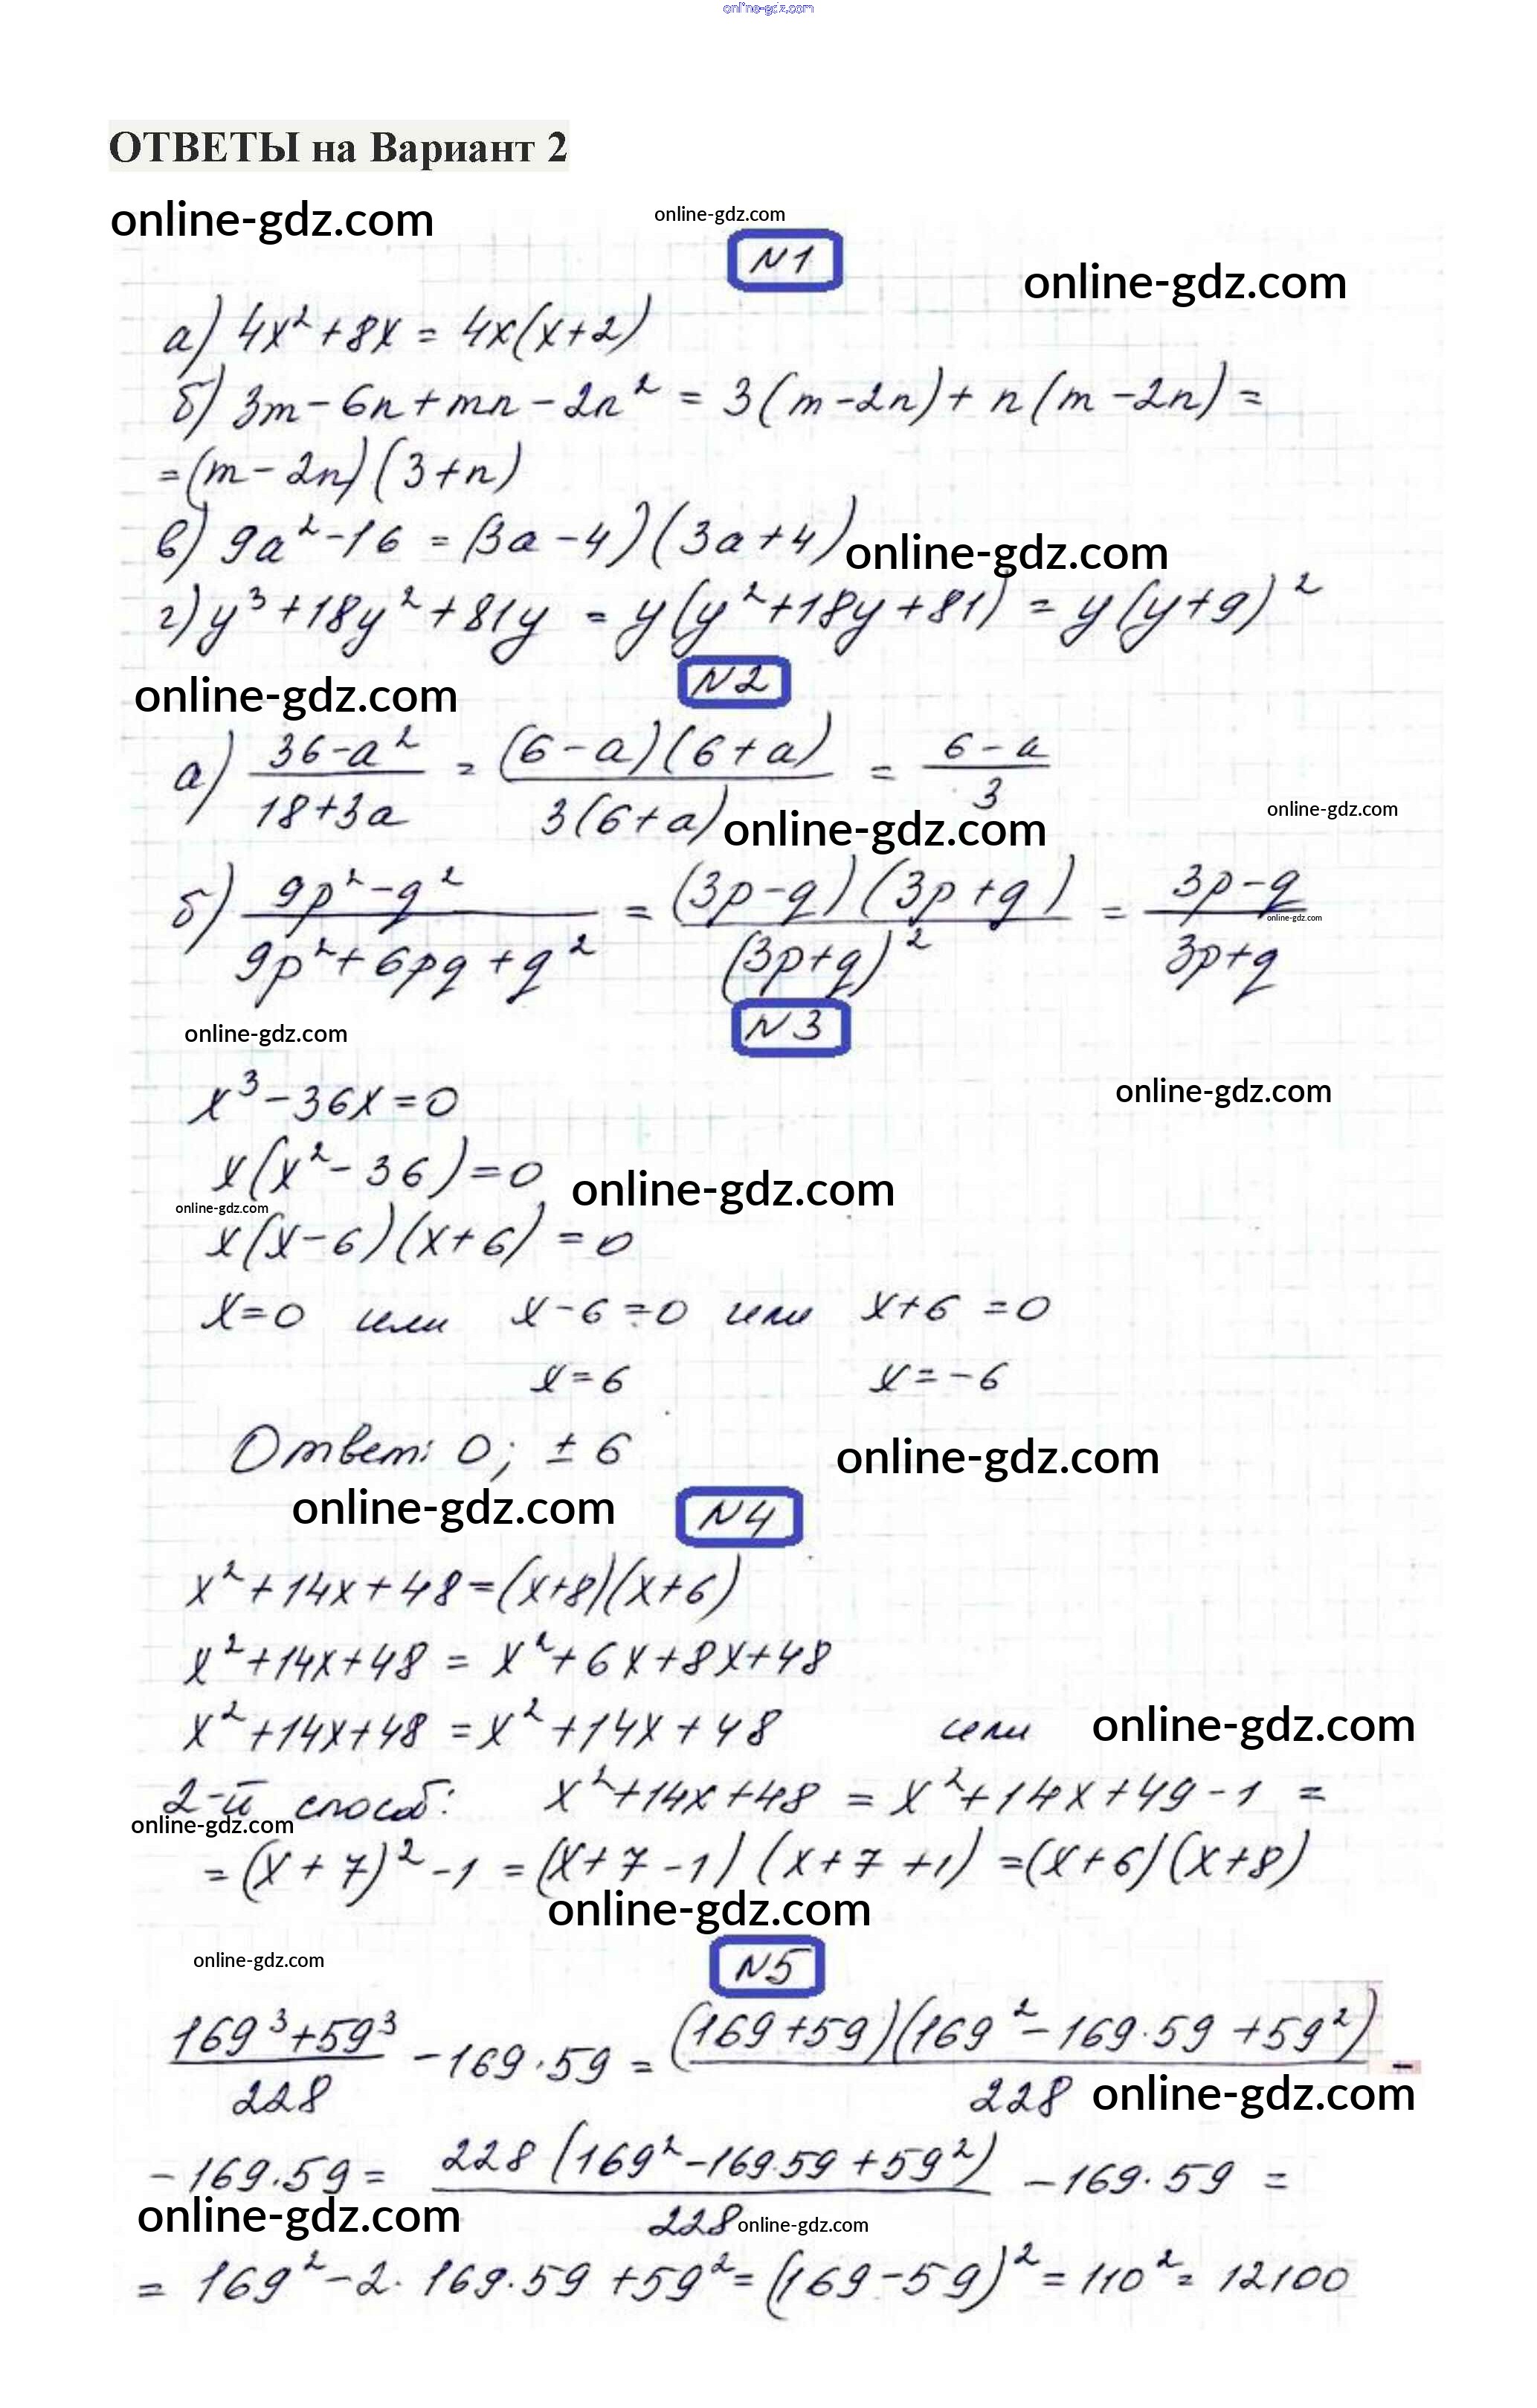 online-gdz.com
ОТВЕТЫ на Вариант 2
online-gdz.com
online-gdz.com
N1
online-gdz.com
а) 4x² + 8x = 4x(x+2)
б) 3m - 6n + mn - 2n² = 3(m-2n) + n(m-2n) =
= (m-2n)(3+n)
в) 9a² - 16 = (3a-4)(3a+4)
online-gdz.com
г) y³ + 18y² + 81y = y(y² + 18y + 81) = y(y+9)²
N2
online-gdz.com
а) (36-a²)/(18+3a) = ((6-a)(6+a))/(3(6+a)) = (6-a)/3
online-gdz.com
online-gdz.com
б) (9p²-q²)/(9p²+6pq+q²) = ((3p-q)(3p+q))/(3p+q)² = (3p-q)/(3p+q)
online-gdz.com
N3
online-gdz.com
x³ - 36x = 0
online-gdz.com
x(x² - 36) = 0
online-gdz.com
online-gdz.com
x(x-6)(x+6) = 0
x=0 или x-6=0 или x+6=0
x=6 x=-6
Ответ: 0; ±6
online-gdz.com
online-gdz.com
N4
x² + 14x + 48 = (x+8)(x+6)
x² + 14x + 48 = x² + 6x + 8x + 48
x² + 14x + 48 = x² + 14x + 48 или
online-gdz.com
2-й способ: x² + 14x + 48 = x² + 14x + 49 - 1 =
online-gdz.com
= (x+7)² - 1 = (x+7-1)(x+7+1) = (x+6)(x+8)
online-gdz.com
online-gdz.com
N5
(169³+59³)/228 - 169·59 = ((169+59)(169² - 169·59 + 59²))/228 -
online-gdz.com
- 169·59 = (228(169² - 169·59 + 59²))/228 - 169·59 =
online-gdz.com
online-gdz.com
= 169² - 2·169·59 + 59² = (169-59)² = 110² = 12100